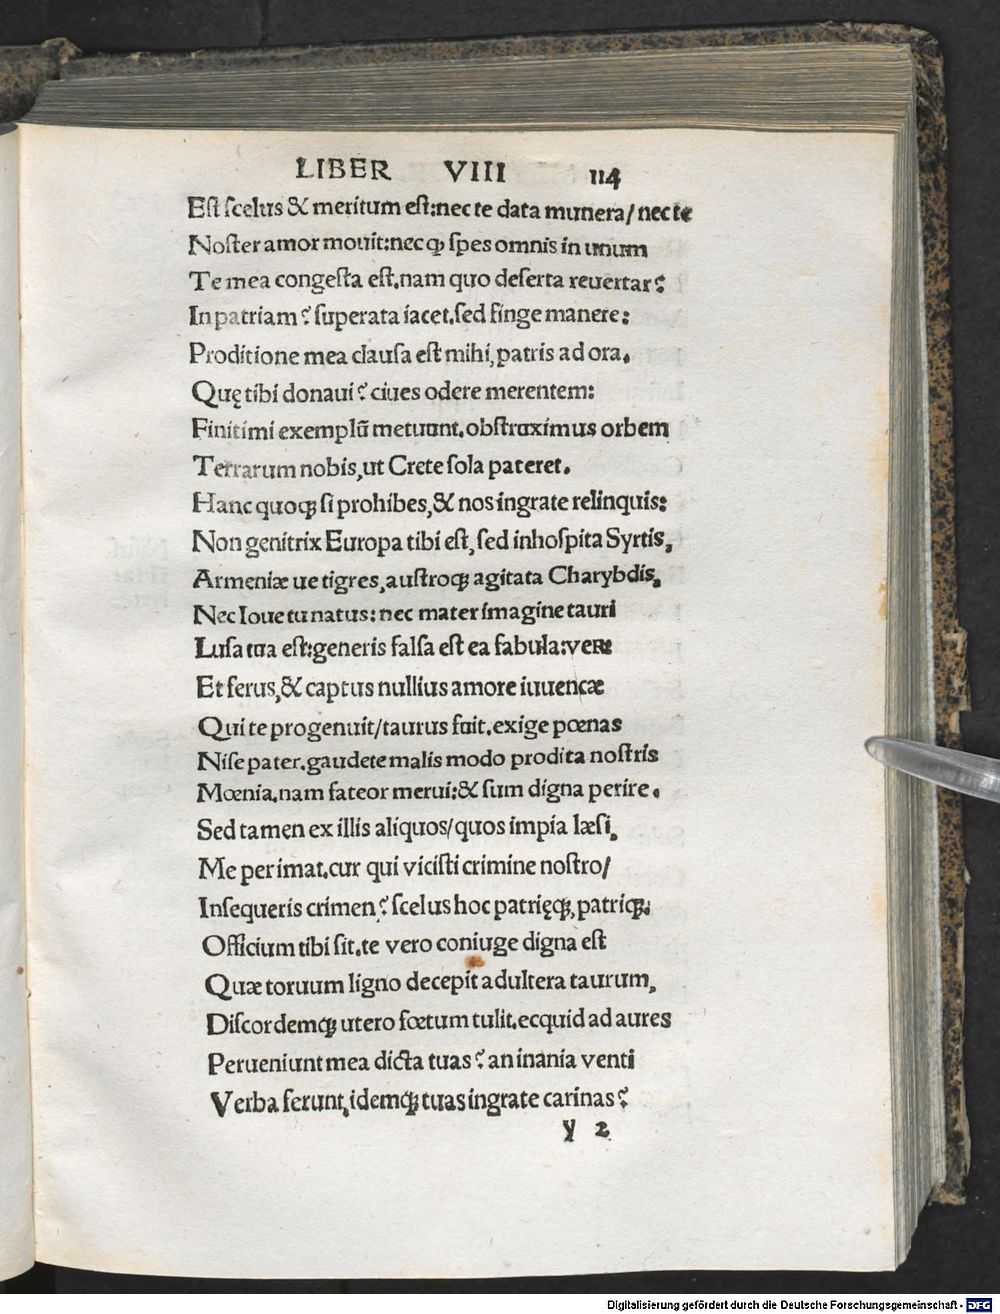 LIBER VIII 114
Est scelus & meritum est:nec te data munera/ nec te
Noster amor mouit:nec qꝫ spes omnis in unum
Te mea congesta est.nam quo deserta reuertar?
In patriam? superata iacet.sed finge manere:
Proditione mea clausa est mihi,patris ad ora.
Quę tibi donaui? ciues odere merentem:
Finitimi exemplū metuunt.obstruximus orbem
Terrarum nobis,ut Crete sola pateret.
Hanc quoqꝫ si prohibes,& nos ingrate relinquis:
Non genitrix Europa tibi est,sed inhospita Syrtis,
Armeniæ ue tigres,austroqꝫ agitata Charybdis,
Nec Ioue tu natus:nec mater imagine tauri
Lusa tua est:generis falsa est ea fabula:vere
Et ferus,& captus nullius amore iuuencæ
Qui te progenuit/taurus fuit.exige pœnas
Nise pater.gaudete malis modo prodita nostris
Mœnia.nam fateor merui:& sum digna perire.
Sed tamen ex illis aliquos/quos impia læsi,
Me perimat.cur qui vicisti crimine nostro/
Insequeris crimen? scelus hoc patrięqꝫ,patriqꝫ.
Officium tibi sit.te vero coniuge digna est
Quæ toruum ligno decepit adultera taurum,
Discordemqꝫ utero fœtum tulit.ecquid ad aures
Perueniunt mea dicta tuas? an inania venti
Verba ferunt,idemqꝫ tuas ingrate carinas?
y 2
Digitalisierung gefördert durch die Deutsche Forschungsgemeinschaft - DFG